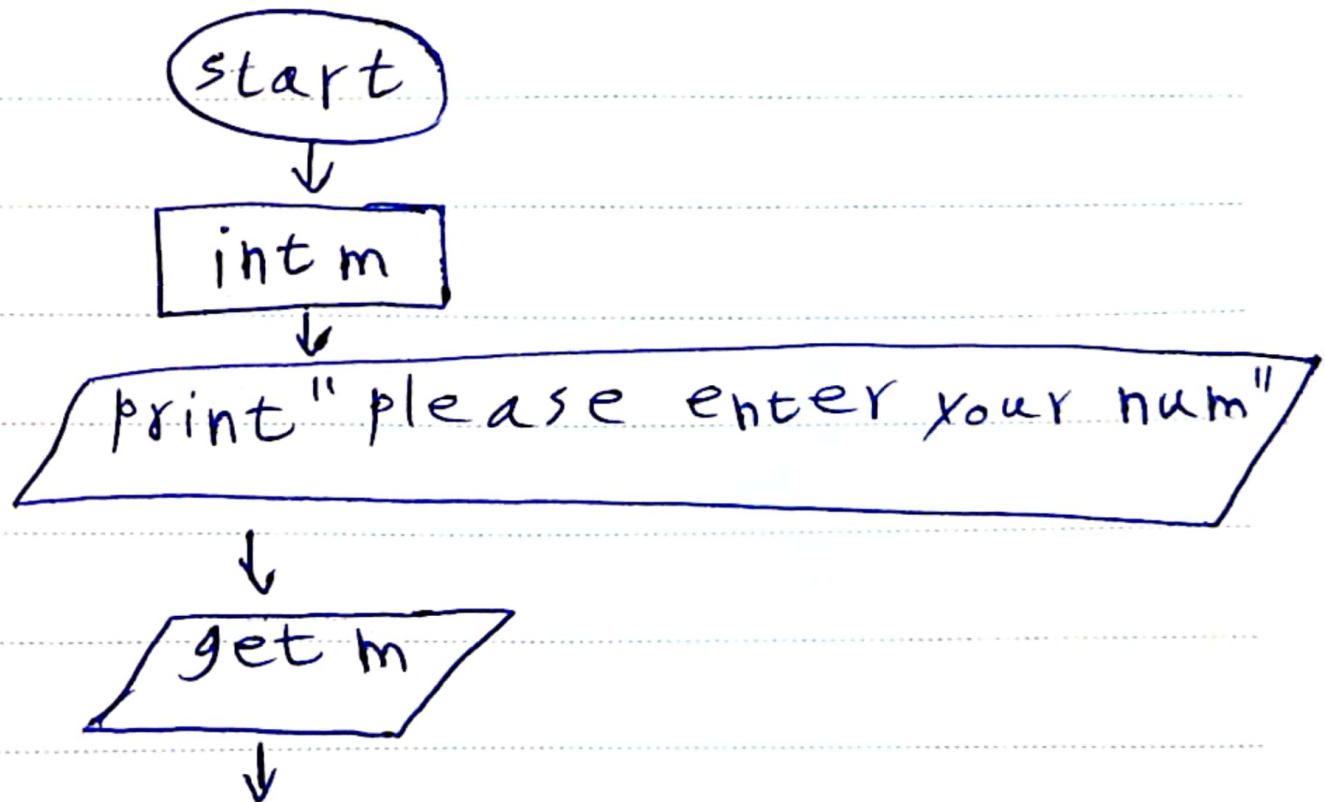 start
int m
print "please enter your num"
get m